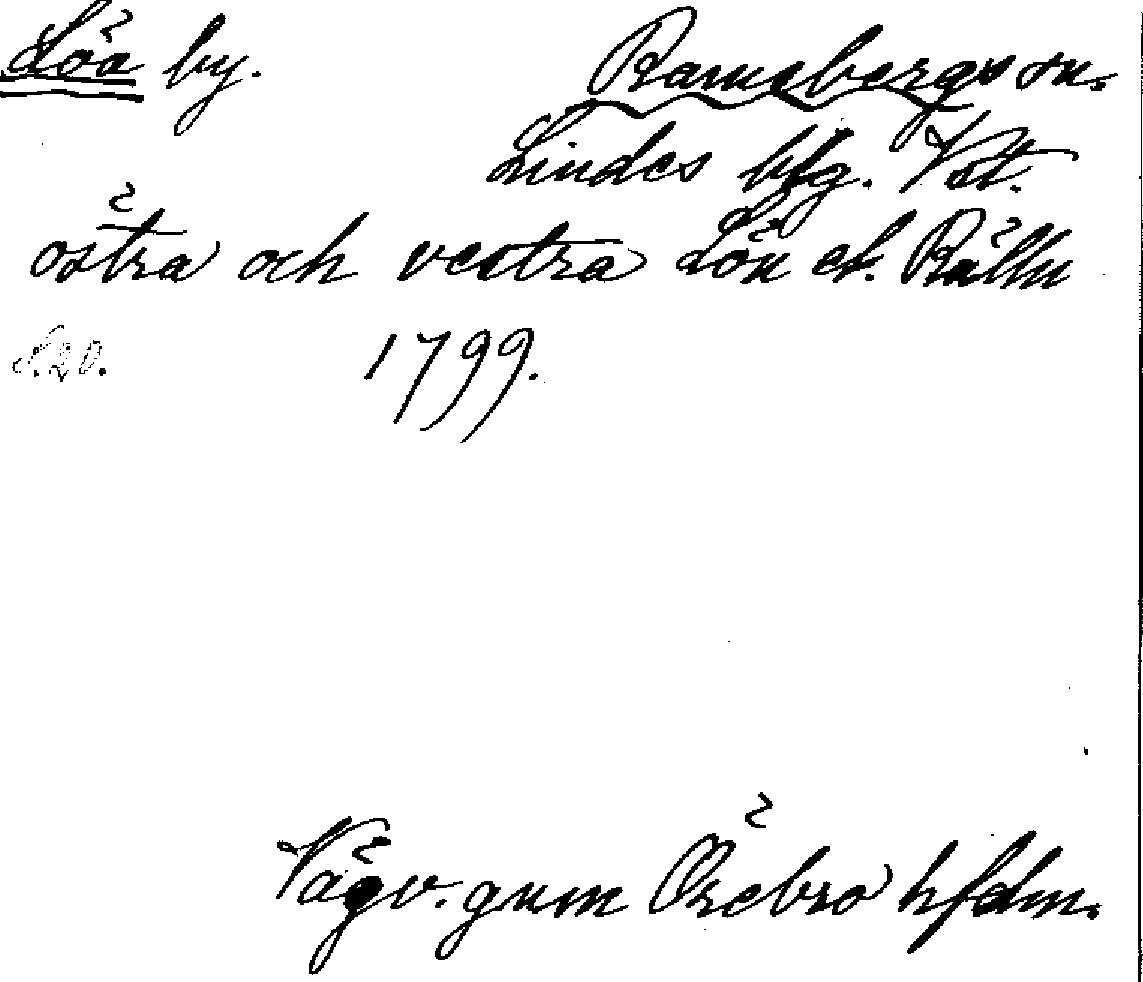 Löa by.
Ramsbergs sn.
Lindes blg. Vst.
östra och vestra Löa el. Rälln
S.20. 1799.
Vägv. gnm Örebro hfdm.